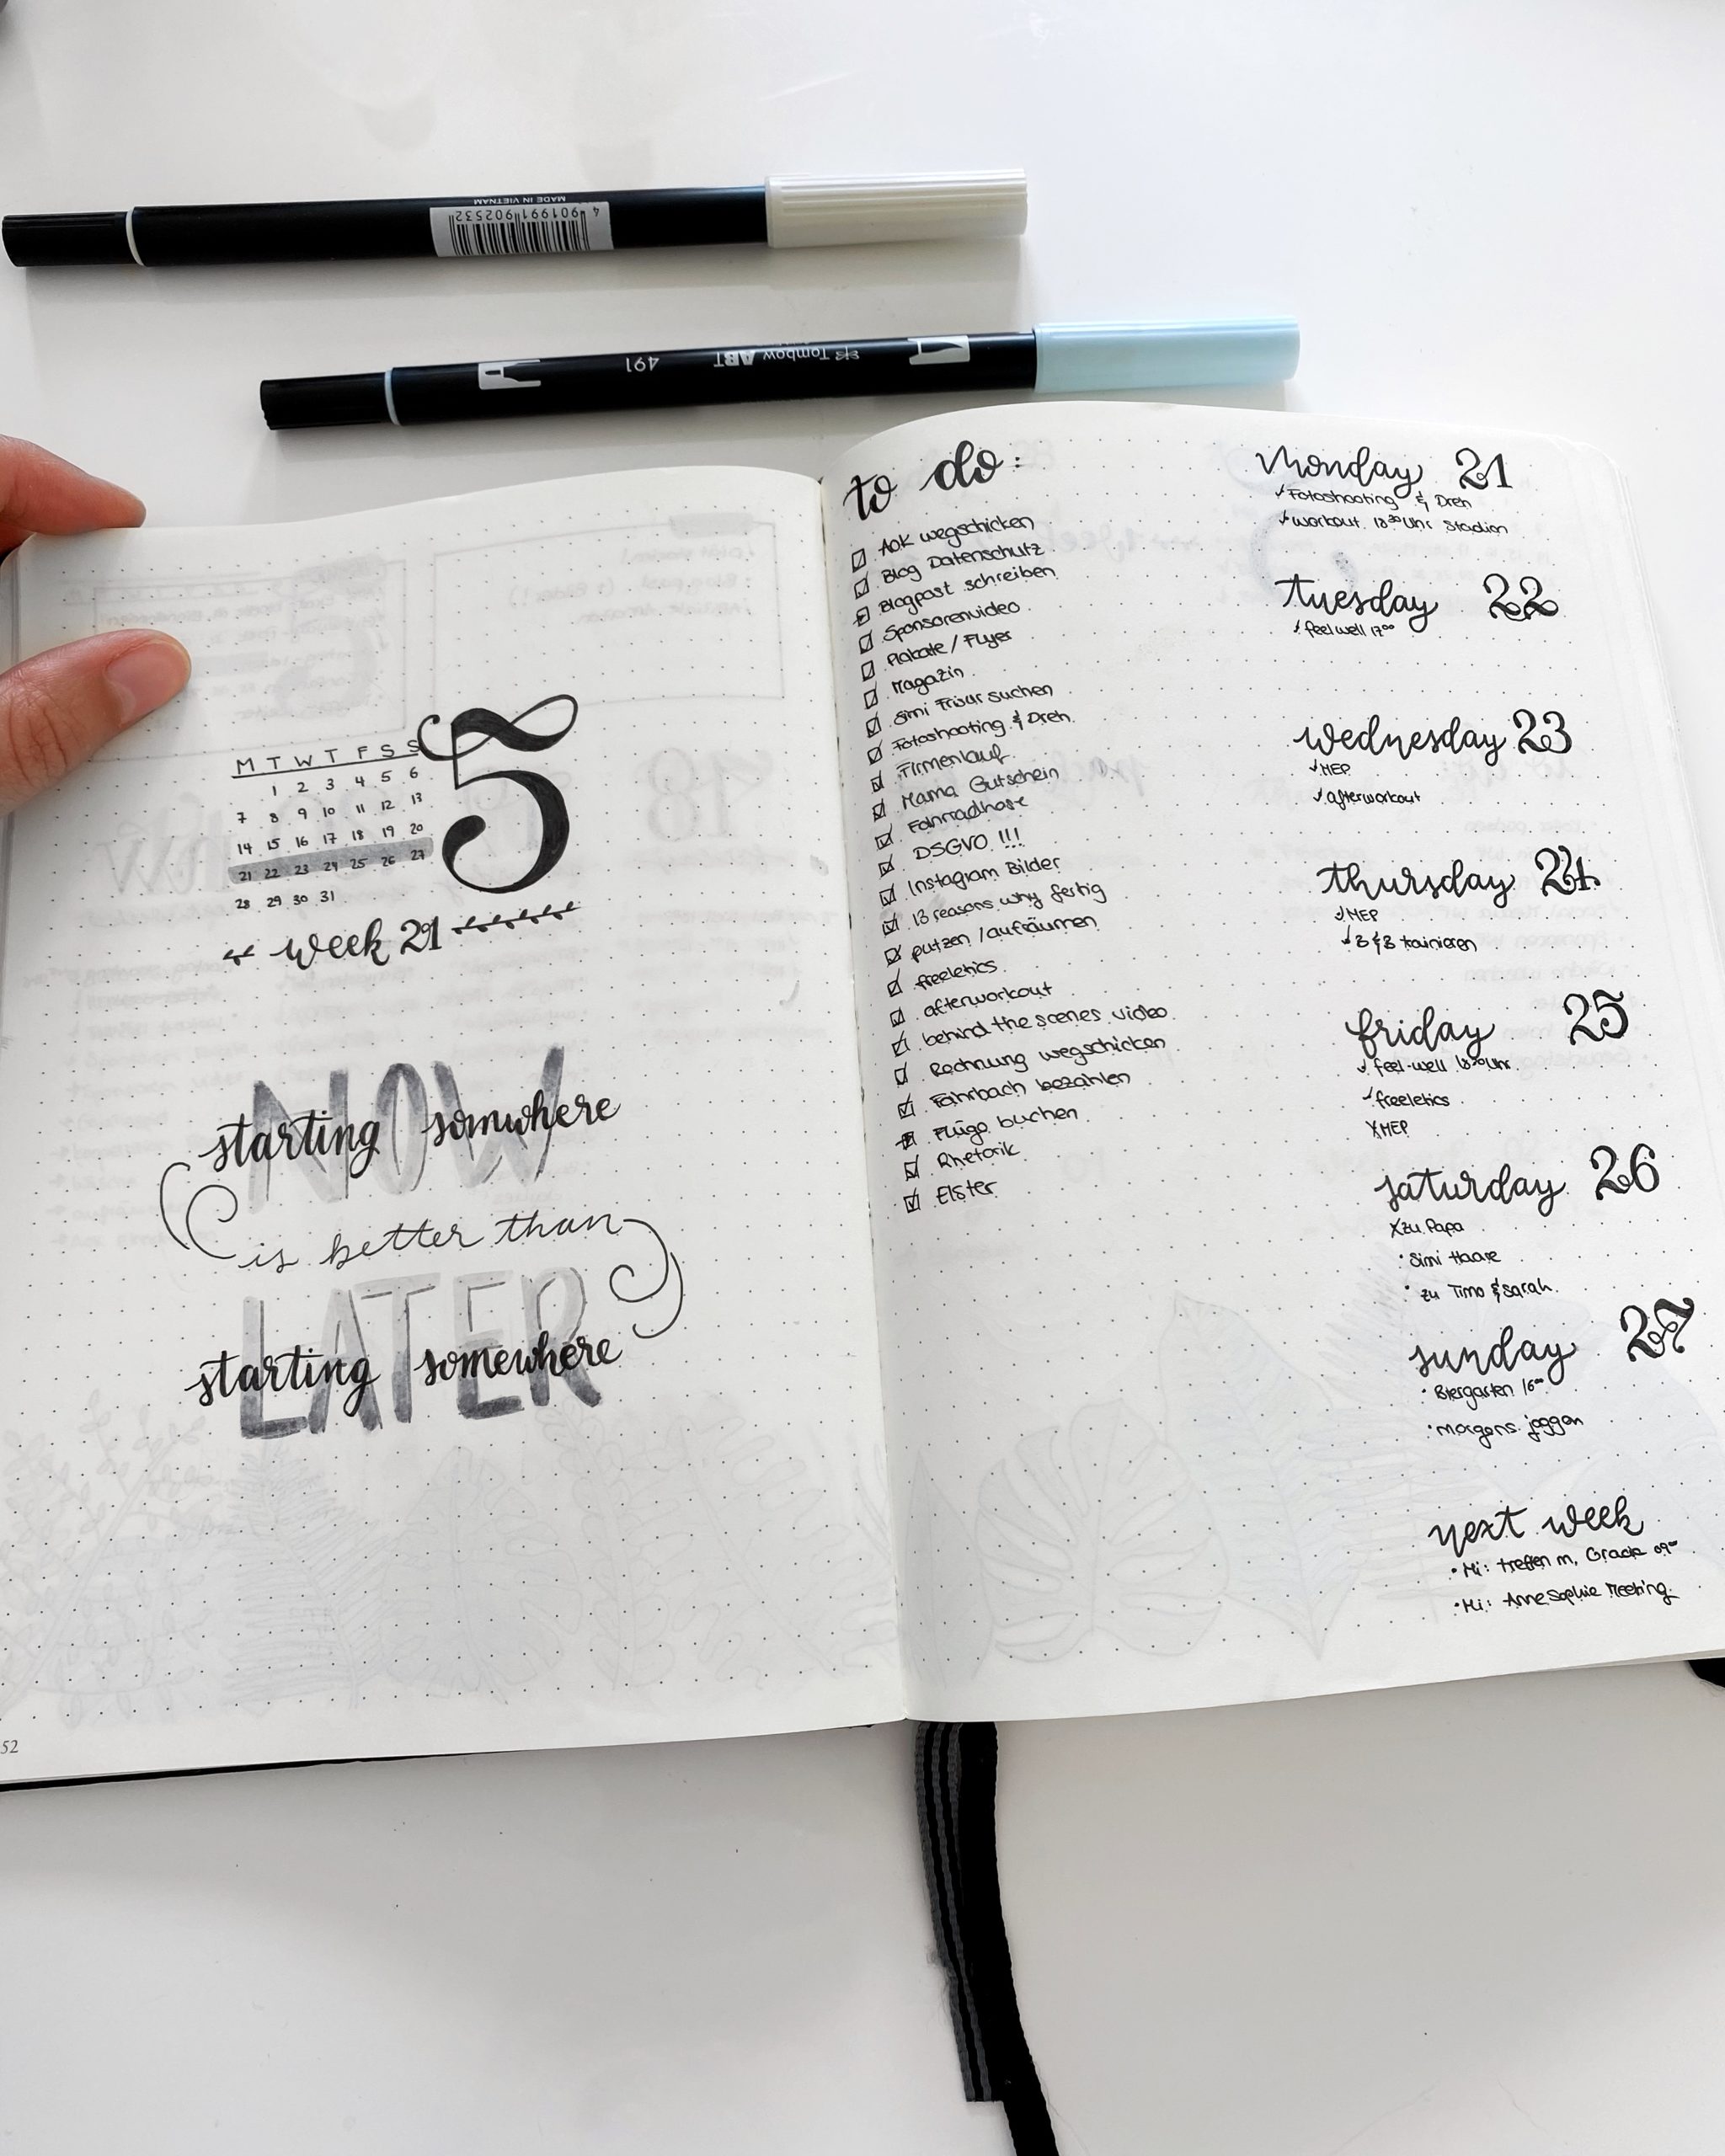 MADE IN VIETNAM
4 901991 902532
Tombow ABT
491
M T W T F S S
1 2 3 4 5 6
7 8 9 10 11 12 13
14 15 16 17 18 19 20
21 22 23 24 25 26 27
28 29 30 31
5
week 21
NOW
starting somwhere
is better than
LATER
starting somewhere
52
to do:
AOK wegschicken
Blog Datenschutz
Blogpost schreiben
Sponsorenvideo
Plakate / Flyer
Magazin
Simi Frisur suchen
Fotoshooting & Dreh
Firmenlauf
Mama Gutschein
Fahrradhose
DSGVO !!!
Instagram Bilder
13 reasons why fertig
putzen / aufräumen
freeletics
afterworkout
behind the scenes video
Rechnung wegschicken
Fahrbach bezahlen
Flüge buchen
Rhetorik
Elster
monday 21
Fotoshooting & Dreh
workout 18³⁰ Uhr Stadion
tuesday 22
feel well 17⁰⁰
wednesday 23
MEP
afterworkout
thursday 24
MEP
B & B trainieren
friday 25
feel-well Uhr
freeletics
MEP
saturday 26
zu Papa
Simi Haare
zu Timo & Sarah
sunday 27
Biergarten 16⁰⁰
morgens joggen
next week
Mi: treffen m, 09⁰⁰
Mi: Anne Sophie Meeting